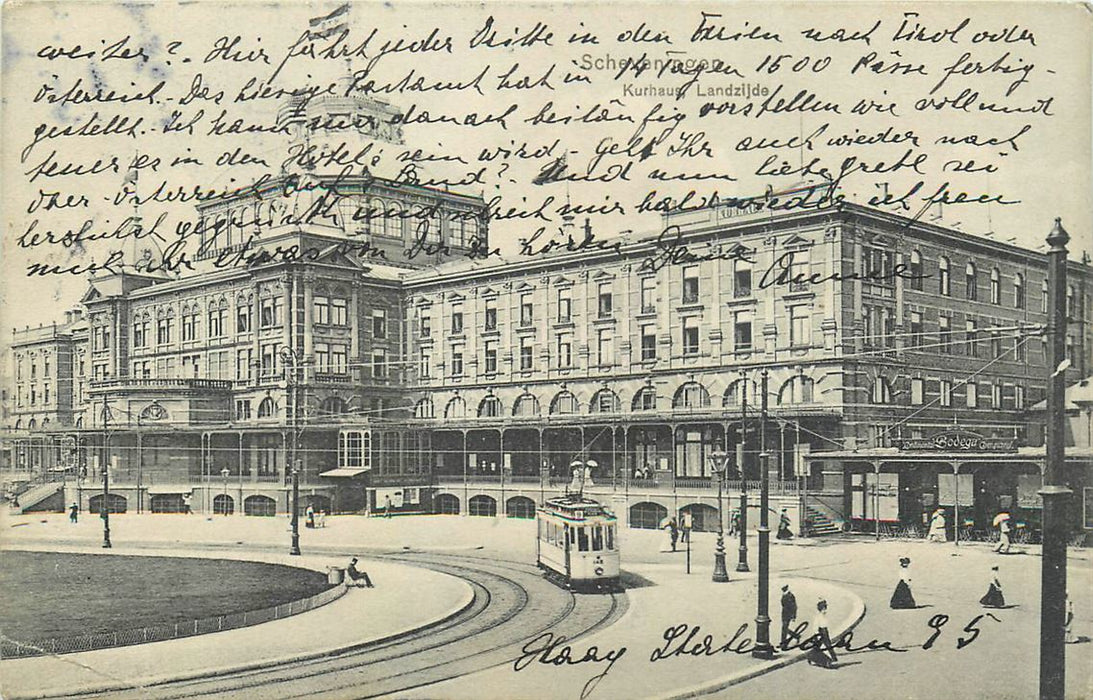 weiter? Hier fährt jeder Dritte in den Ferien nach Tirol oder
Österreich. Das hiesige Postamt hat in 14 Tagen 1500 Pässe fertig-
Scheveningen
Kurhaus, Landzijde
gestellt. Ich kann mir danach beiläufig vorstellen wie voll und
teuer es in den Hotels sein wird. Geht Ihr auch wieder nach
Ober-Österreich aufs Land? Und nun liebe Grete sei
herzlichst gegrüsst und schreib mir bald wieder, ich freu
mich etwas von Dir zu hören. Deine
KURHAUS
Continental Bodega Company
Haag Statenlaan 95